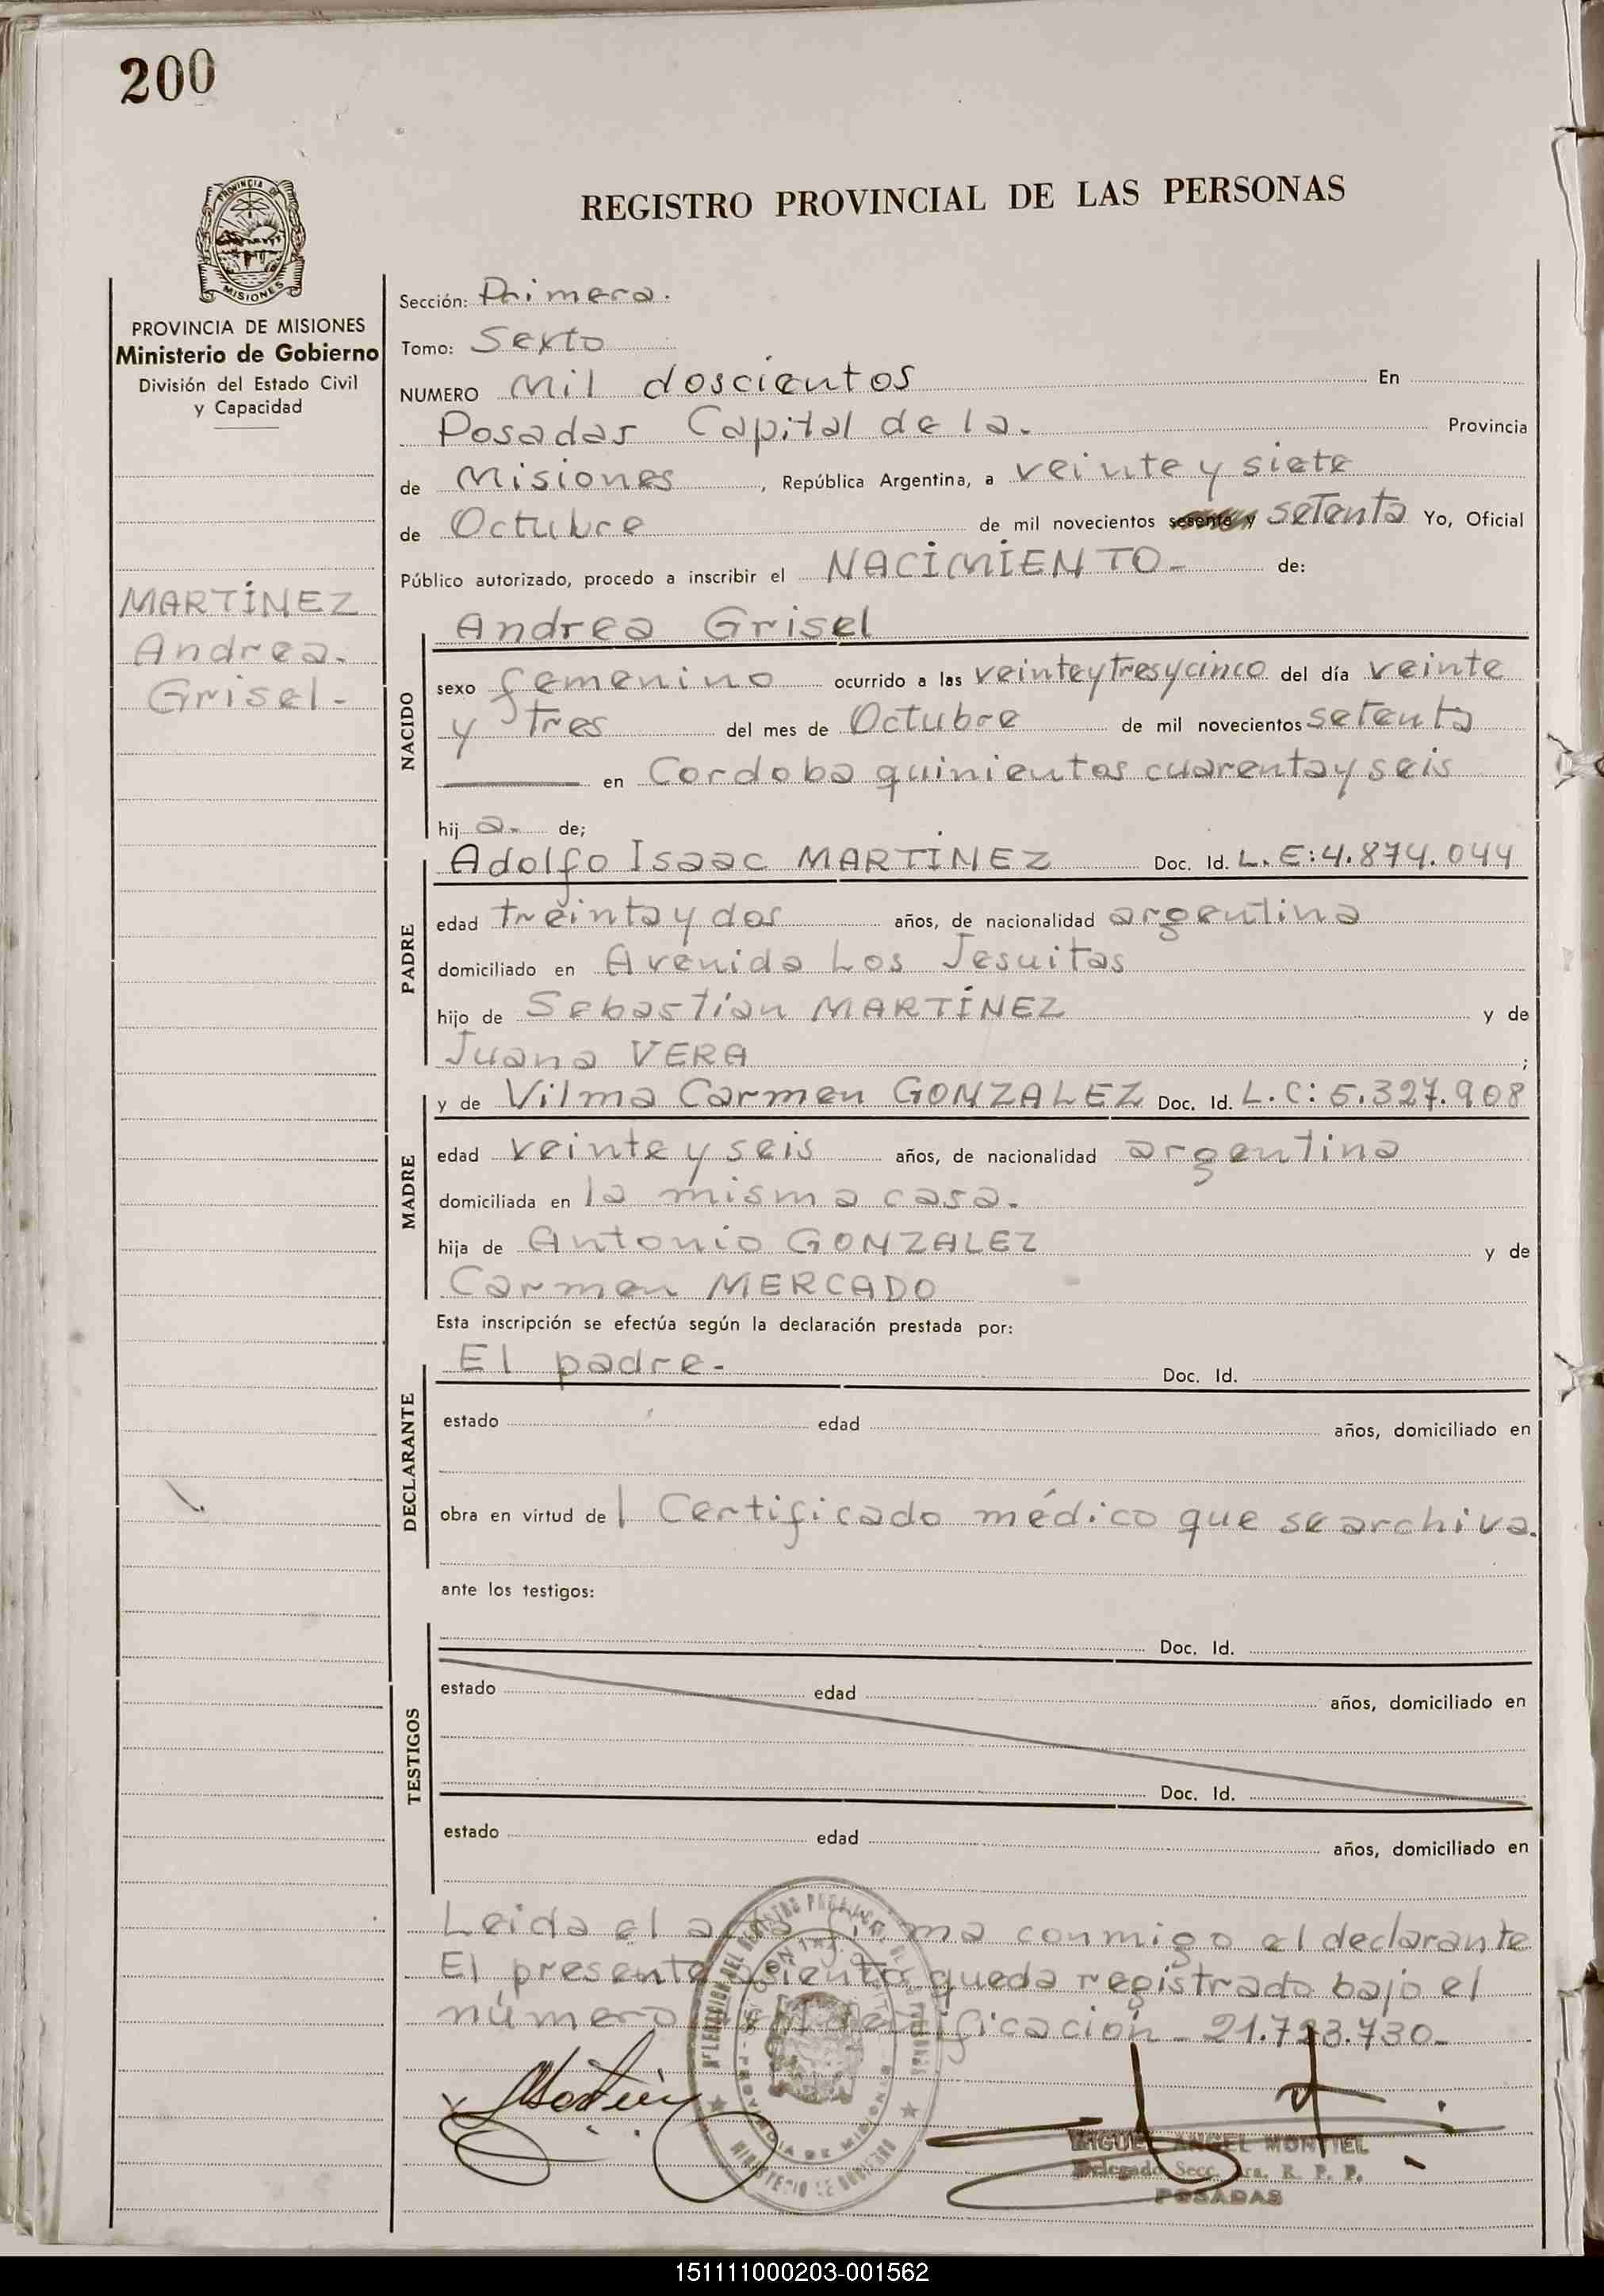 200
REGISTRO PROVINCIAL DE LAS PERSONAS
PROVINCIA DE
MISIONES
PROVINCIA DE MISIONES
Ministerio de Gobierno
División del Estado Civil
y Capacidad
MARTÍNEZ
Andrea.
Grisel-
Sección: Primera.
Tomo: Sexto
NUMERO Mil doscientos En
Posadas Capital de la. Provincia
de Misiones, República Argentina, a veinte y siete
de Octubre de mil novecientos sesenta y setenta Yo, Oficial
Público autorizado, procedo a inscribir el NACIMIENTO- de:
NACIDO
Andrea Grisel
sexo femenino ocurrido a las veinteytresycinco del día veinte
y tres del mes de Octubre de mil novecientos setenta
en Cordoba quinientos cuarentayseis
hij a. de;
PADRE
Adolfo Isaac MARTÍNEZ Doc. Id. L.E:4.874.044
edad treintaydos años, de nacionalidad argentina
domiciliado en Avenida Los Jesuitas
hijo de Sebastian MARTÍNEZ y de
Juana VERA ;
MADRE
y de Vilma Carmen GONZALEZ Doc. Id. L.C: 5.327.908
edad veinte y seis años, de nacionalidad argentina
domiciliada en la misma casa.
hija de Antonio GONZALEZ y de
Carmen MERCADO
Esta inscripción se efectúa según la declaración prestada por:
DECLARANTE
El padre- Doc. Id.
estado edad años, domiciliado en
obra en virtud de l Certificado médico que se archiva.
ante los testigos:
TESTIGOS
Doc. Id.
estado edad años, domiciliado en
Doc. Id.
estado edad años, domiciliado en
Leida el acta firma conmigo el declarante
El presente asiento queda registrado bajo el
número de identificación - 21.723.730-
PROVINCIA DE MISIONES
MINISTERIO DE GOBIERNO
MIGUEL ANGEL MONTIEL
Delegado Secc. 1ra. R. P. P.
POSADAS
151111000203-001562